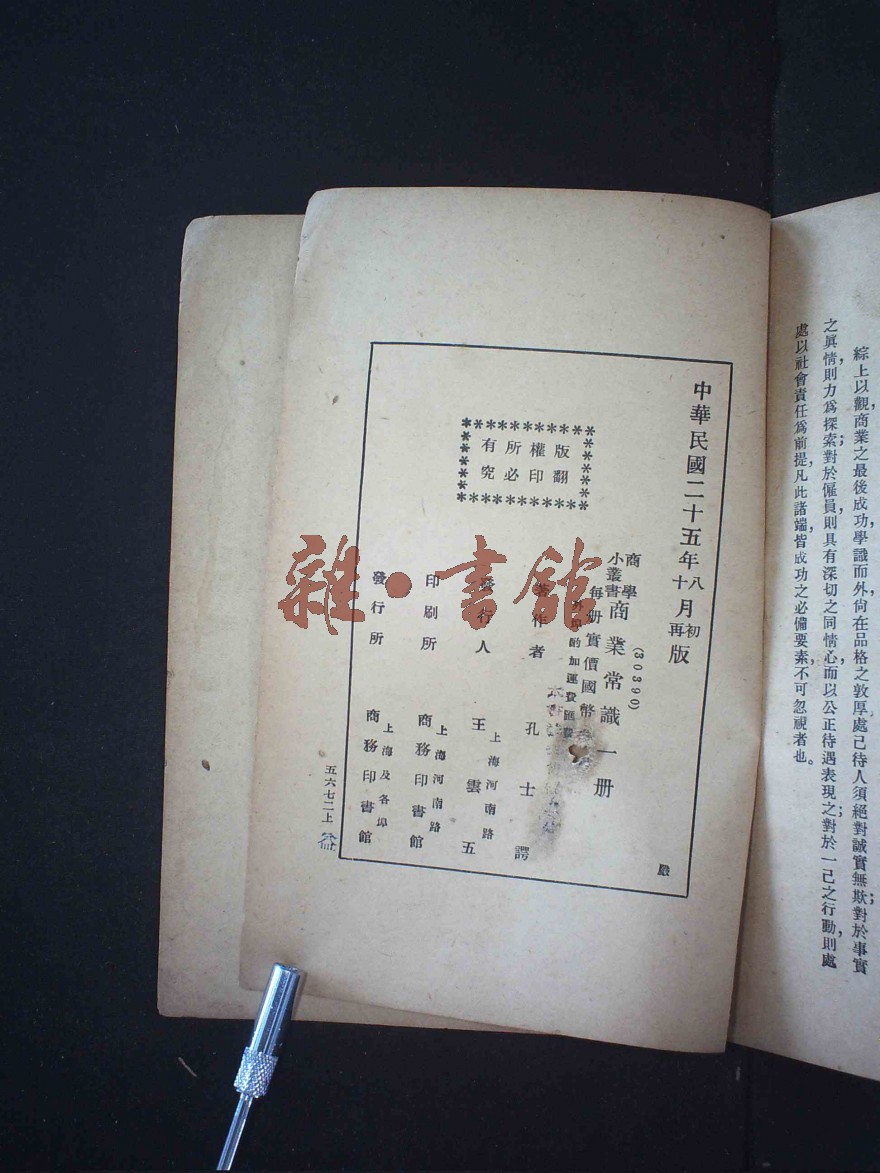 綜上以觀，商業之最後成功，學識而外，尙在品格之敦厚，處己待人，須絕對誠實無欺；對於事實
之眞情，則力爲探索；對於僱員，則具有深切之同情心，而以公正待遇表現之；對於一己之行動，則處
處以社會責任爲前提，凡此諸端，皆成功之必備要素，不可忽視者也。
中華民國二十五年八月初版
十 再
商學小叢書
商業常識一册
(30390)
每册實價國幣
外埠酌加運費匯費
著作者 孔士諤
發行人 王雲五
上海河南路
印刷所 商務印書館
上海河南路
發行所 商務印書館
上海及各埠
版權所有
翻印必究
五六七二上
雜·書館